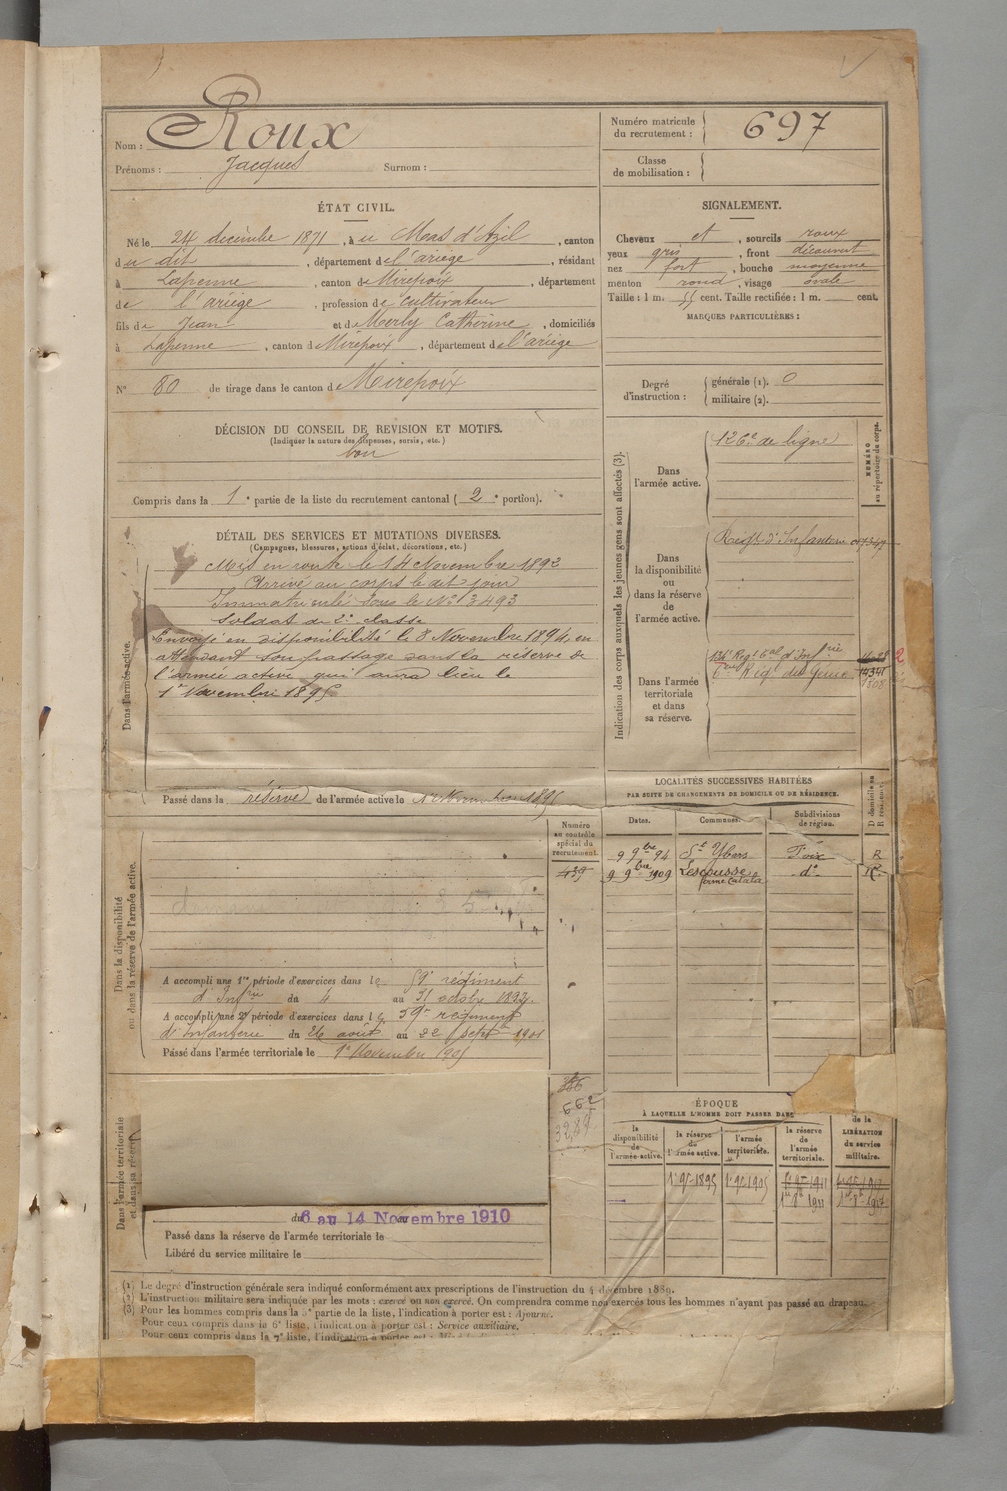 Nom : Roux
Prénoms : Jacques Surnom :
Numéro matricule du recrutement : 697
Classe de mobilisation :
ÉTAT CIVIL.
Né le 24 décembre 1871, à u Mas d'Azil, canton
du dit, département de l'ariège, résidant
à Lapenne, canton de Mirepoix, département
de l'ariège, profession de Cultivateur
fils de Jean et de Merly Catherine, domiciliés
à Lapenne, canton de Mirepoix, département de l'ariège
N° 80 de tirage dans le canton de Mirepoix
SIGNALEMENT.
Cheveux et, sourcils roux
yeux gris, front découvert
nez fort, bouche moyenne
menton rond, visage ovale
Taille : 1 m. 55 cent. Taille rectifiée : 1 m. cent.
MARQUES PARTICULIÈRES :
Degré d'instruction : générale (1). 0
militaire (2).
DÉCISION DU CONSEIL DE REVISION ET MOTIFS.
(Indiquer la nature des dispenses, sursis, etc.)
bon
Compris dans la 1e partie de la liste du recrutement cantonal (2e portion).
DÉTAIL DES SERVICES ET MUTATIONS DIVERSES.
(Campagnes, blessures, actions d'éclat, décorations, etc.)
Dans l'armée active.
Mis en route le 14 Novembre 1892
Arrivé au corps le dit jour
Immatriculé sous le N° 3493
Soldat de 2e classe
Envoyé en disponibilité le 8 Novembre 1894, en
attendant son passage dans la réserve de
l'armée active qui aura lieu le
1er Novembre 1895
Passé dans la réserve de l'armée active le 1er Novembre 1895
Indication des corps auxquels les jeunes gens sont affectés (3).
NUMÉRO au répertoire du corps.
Dans l'armée active.
126e de ligne
Dans la disponibilité ou dans la réserve de l'armée active.
Régt d'Infanterie
Dans l'armée territoriale et dans sa réserve.
Régt tal d'Infrie
Régt du Génie
LOCALITÉS SUCCESSIVES HABITÉES
PAR SUITE DE CHANGEMENTS DE DOMICILE OU DE RÉSIDENCE.
D domicile ou R résidence.
Dates. Communes. Subdivisions de région.
9 9bre 94 St Ybars Foix R
9 9bre 1909 Lescousse do R
Dans la disponibilité ou dans la réserve de l'armée active.
Numéro au contrôle spécial du recrutement.
A accompli une 1re période d'exercices dans le 59e régiment
d'Infrie du 4 au 31 octobre
A accompli une 2e période d'exercices dans le 59e régiment
d'Infanterie du 26 août au 22 Sept 1901
Passé dans l'armée territoriale le 1er Novembre 1905
Dans l'armée territoriale et dans sa réserve
662
du 6 au 14 Novembre 1910
Passé dans la réserve de l'armée territoriale le
Libéré du service militaire le
ÉPOQUE
À LAQUELLE L'HOMME DOIT PASSER DANS
la disponibilité de l'armée active.
la réserve de l'armée active.
l'armée territoriale.
la réserve de l'armée territoriale.
de la LIBÉRATION du service militaire.
1er 9bre 1895 1er 9bre 1905
(1) Le degré d'instruction générale sera indiqué conformément aux prescriptions de l'instruction du 4 décembre 1889.
(2) L'instruction militaire sera indiquée par les mots : exercé ou non exercé. On comprendra comme non exercés tous les hommes n'ayant pas passé au drapeau.
(3) Pour les hommes compris dans la 5e partie de la liste, l'indication à porter est : Ajourné.
Pour ceux compris dans la 6e liste, l'indication à porter est : Service auxiliaire.
Pour ceux compris dans la 7e liste, l'indication à porter est :